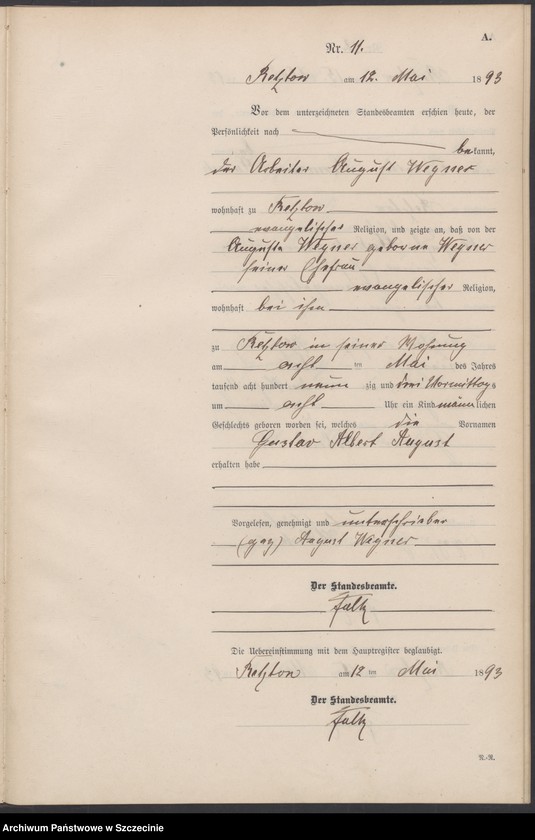 A.
Nr. 11.
Retzow am 12. Mai 1893
Vor dem unterzeichneten Standesbeamten erschien heute, der
Persönlichkeit nach
bekannt,
der Arbeiter August Wegner
wohnhaft zu Retzow
evangelischer Religion, und zeigte an, daß von der
Auguste Wegner geborne Wegner
seiner Ehefrau
evangelischer Religion,
wohnhaft bei ihm
zu Retzow in seiner Wohnung
am acht ten Mai des Jahres
tausend acht hundert neun zig und drei Vormittags
um acht Uhr ein Kind männlichen
Geschlechts geboren worden sei, welches die Vornamen
Gustav Albert August
erhalten habe
Vorgelesen, genehmigt und unterschrieben
(gez) August Wegner
Der Standesbeamte.
Falk
Die Uebereinstimmung mit dem Hauptregister beglaubigt.
Retzow am 12 ten Mai 1893
Der Standesbeamte.
Falk
N.-R.
Archiwum Państwowe w Szczecinie